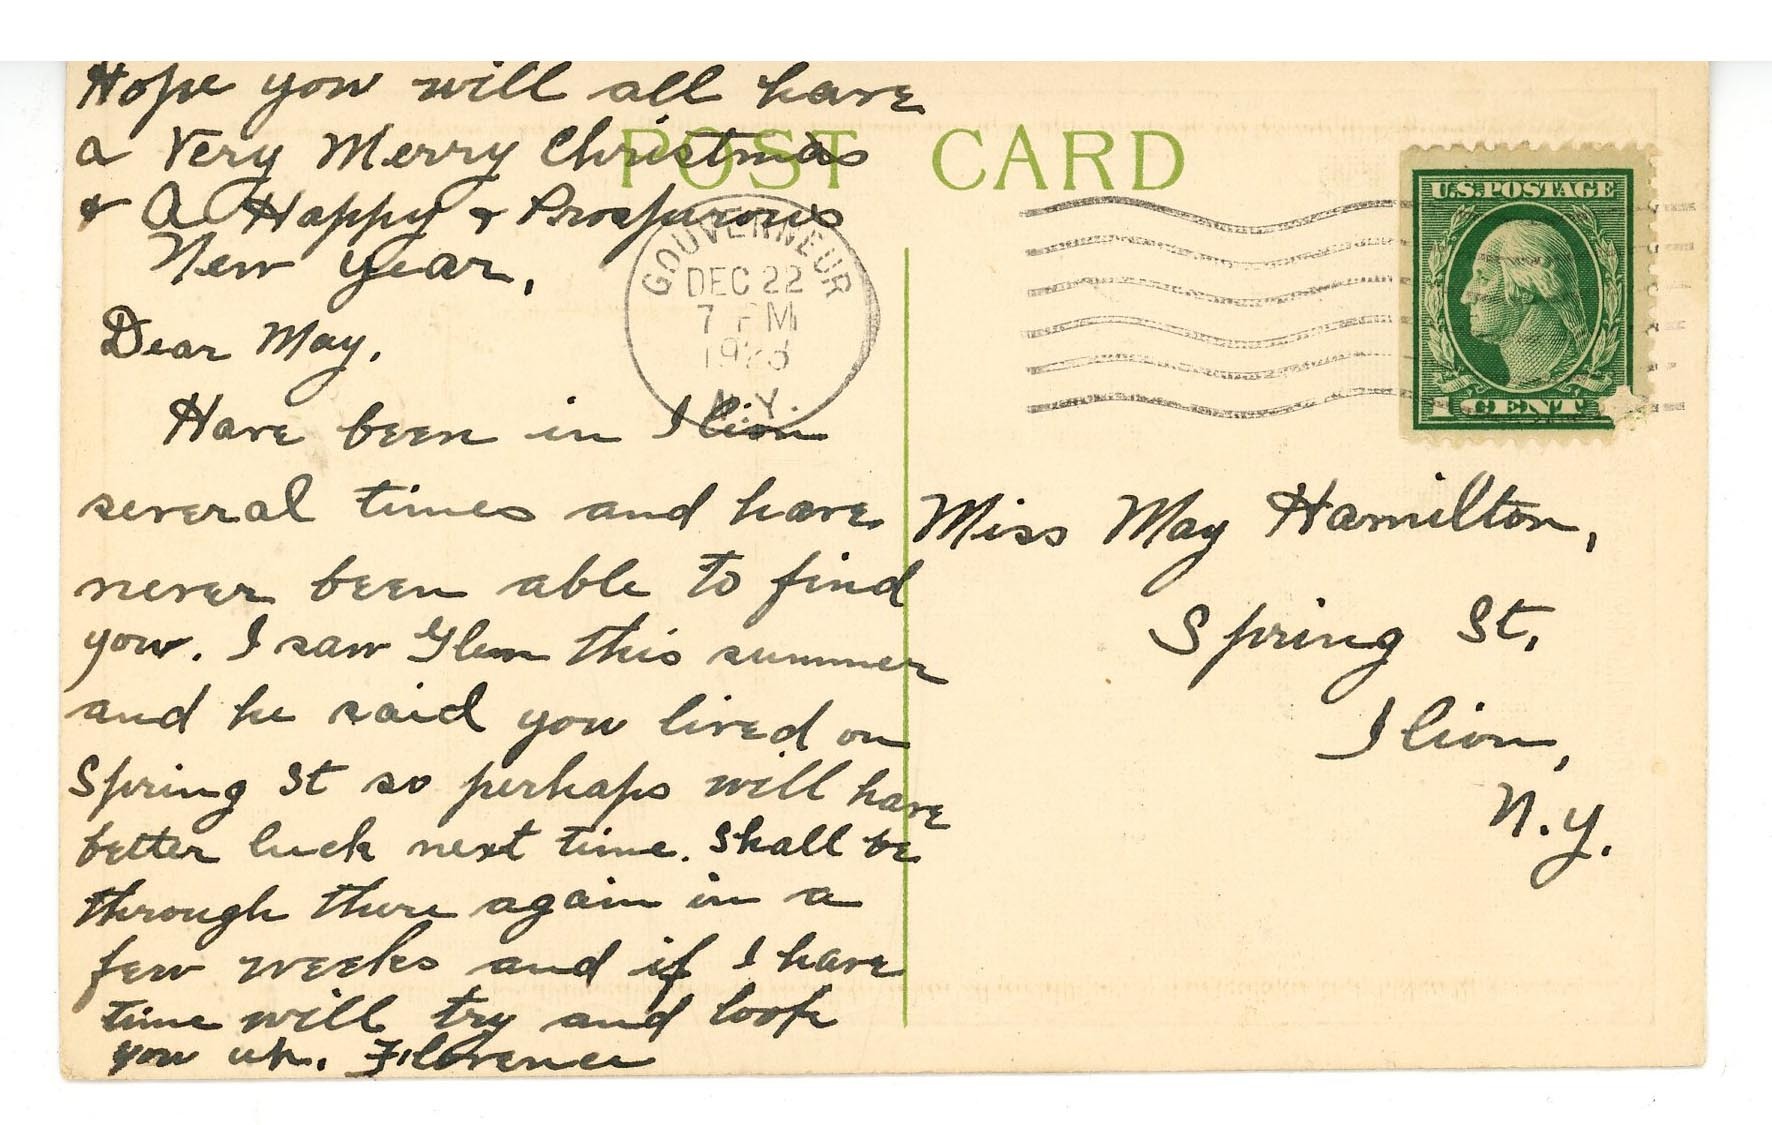 Hope you will all have
a Very Merry Christmas
& A Happy & Prosperous
New Year.
Dear May,
Have been in Ilion
several times and have
never been able to find
you. I saw Glenn this summer
and he said you lived on
Spring St so perhaps will have
better luck next time. Shall be
through there again in a
few weeks and if I have
time will try and look
you up. Florence
POST CARD
GOUVERNEUR
DEC 22
7 PM
N.Y.
U.S. POSTAGE
1 CENT 1
Miss May Hamilton,
Spring St,
Ilion,
N.Y.